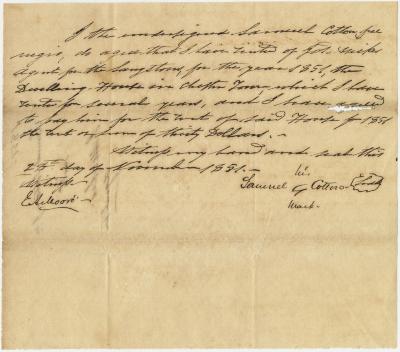 I the undersigned Samuel Cotton free
negro, do agree that I have rented of Jos. Spikes
agent for the Langstons, for the year 1851, the
Dwelling House in Chester Town which I have
rented for several years, and I have
to pay him for the rent of said House for 1851
the rent or sum of thirty Dollars. -
Witness my hand and seal this
day of November 1851. -
Witness
E. A. Moore
his
Samuel Cotton Seal
mark -